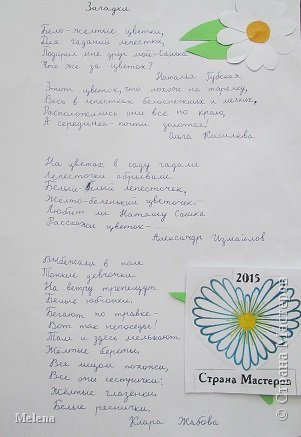 Загадки
Бело-желтые цветки,
Для гаданий лепестки,
Подарил мне друг мой-Сашка
Что же за цветок?
Наталья Губская
Этот цветок, что похож на тарелку,
Весь в лепестках белоснежных и мелких,
Расположились они все по краю,
А серединка-почти золотая!
Ольга Киселева
На цветах в саду гадали
Лепесточки обрывали.
Белый-белый лепесточек,
Желто-беленький цветочек.
Любит ли Наташу Сашка
Расскажи цветок-
Александр Измайлов
Выбежали в поле
Тонкие девчонки.
На ветру трепещут
Белые юбчонки.
Бегают по травке-
Вот так непоседы!
Там и здесь мелькают
Жёлтые береты,
Все лицом похожи,
Все они сестрички:
Жёлтые глазёнки.
Белые реснички.
Клара Жабова
2015
Страна Мастеров
Melena
© Страна Мастеров